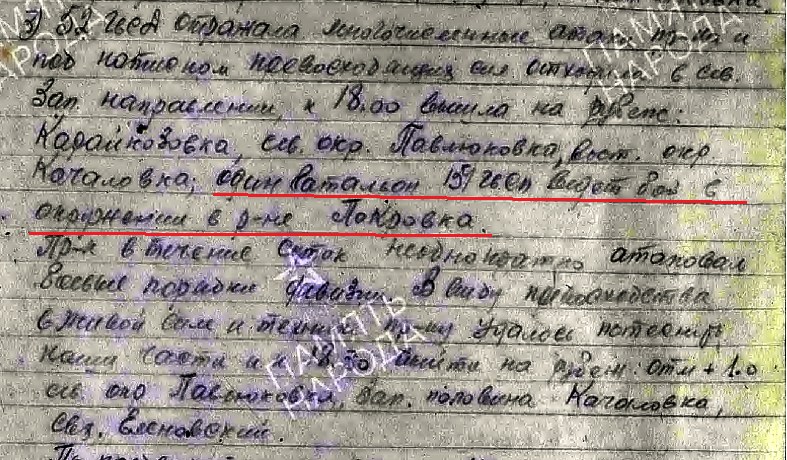 3) 52 гвсд отражала многочисленные атаки пр-ка и
под натиском превосходящих сил отходила в сев.
зап. направлении, к 18.00 вышла на рубеж:
Карайкозовка, сев. окр. Павлюковка, вост. окр.
Качаловка, один батальон 151 гвсп ведет бой в
окружении в р-не Покровка.
Пр-к в течение суток неоднократно атаковал
боевые порядки дивизии. В виду превосходства
в живой силе и технике пр-ку удалось потеснить
наши части и к выйти на рубеж: отм +1.0
сев. окр Павлюковка, зап. половина Качаловка,
свх.
ПАМЯТЬ
НАРОДА
ПАМЯТЬ
НАРОДА
ПАМЯТЬ
НАРОДА